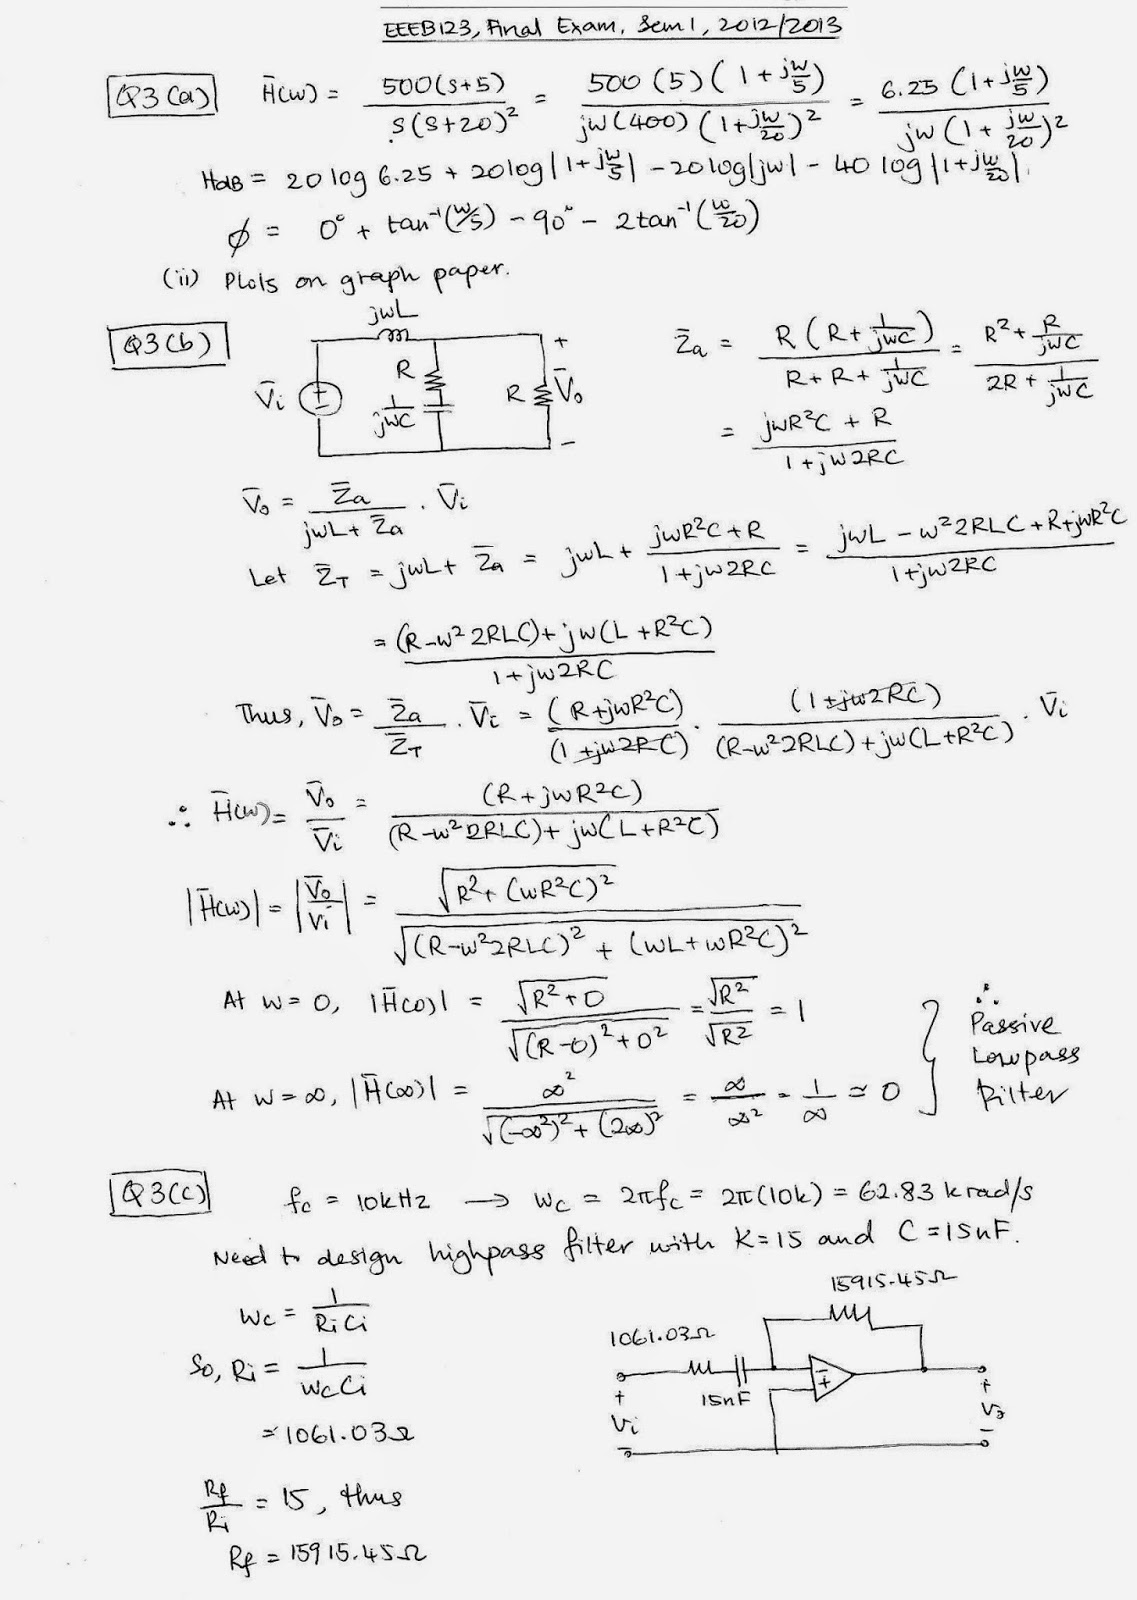 EEEB123, Final Exam, Sem 1, 2012/2013
Q3(a) H̄(w) = 500(s+5) / s(s+20)² = 500 (5) (1 + jw/5) / jw(400) (1+jw/20)² = 6.25 (1+jw/5) / jw (1 + jw/20)²
HdB = 20 log 6.25 + 20log|1+jw/5| - 20log|jw| - 40 log |1+jw/20|
φ = 0° + tan⁻¹(w/5) - 90° - 2tan⁻¹(w/20)
(ii) Plots on graph paper.
Q3(b)
jwL
V̄i
R
1/jwC
R
+
V̄o
-
Z̄a = R (R + 1/jwC) / R + R + 1/jwC = R² + R/jwC / 2R + 1/jwC
= jwR²C + R / 1 + jw2RC
V̄o = Z̄a / jwL + Z̄a . V̄i
Let Z̄T = jwL + Z̄a = jwL + jwR²C + R / 1 + jw2RC = jwL - w²2RLC + R + jwR²C / 1 + jw2RC
= (R - w²2RLC) + jw(L + R²C) / 1 + jw2RC
Thus, V̄o = Z̄a / Z̄T . V̄i = (R + jwR²C) / (1 + jw2RC) . (1 + jw2RC) / (R - w²2RLC) + jw(L + R²C) . V̄i
∴ H̄(w) = V̄o / V̄i = (R + jwR²C) / (R - w²2RLC) + jw(L + R²C)
|H̄(w)| = |V̄o / Vi| = √R² + (wR²C)² / √(R - w²2RLC)² + (wL + wR²C)²
At w = 0, |H̄(0)| = √R² + 0 / √(R - 0)² + 0² = √R² / √R² = 1
At w = ∞, |H̄(∞)| = ∞² / √(-∞²)² + (2∞)² = ∞ / ∞² = 1 / ∞ ≃ 0
∴ Passive
Lowpass
Filter
Q3(c) fc = 10kHz → wc = 2πfc = 2π(10k) = 62.83 k rad/s
Need to design highpass filter with K = 15 and C = 15nF.
wc = 1 / RiCi
So, Ri = 1 / wcCi
= 1061.03Ω
Rf / Ri = 15, thus
Rf = 15915.45Ω
15915.45Ω
1061.03Ω
15nF
-
+
+
Vi
-
+
Vo
-